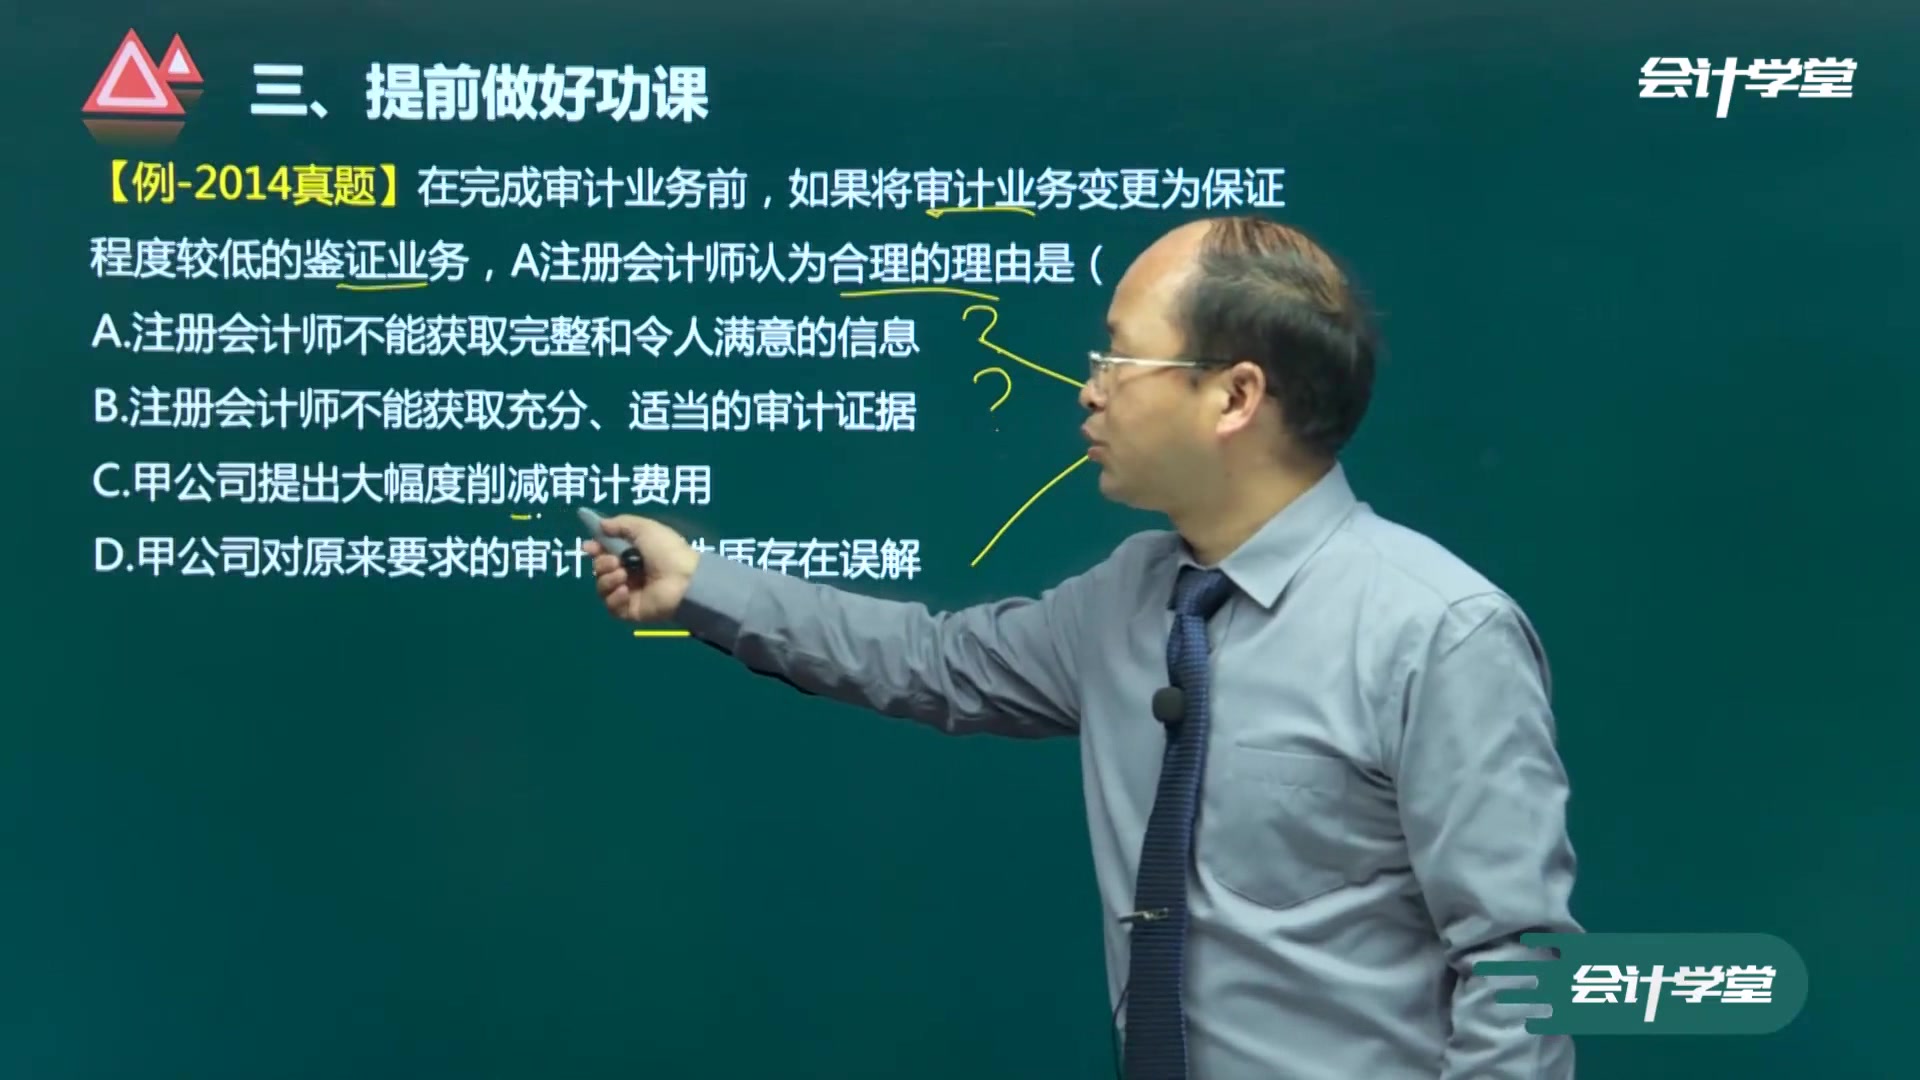 三、提前做好功课
会计学堂
【例-2014真题】在完成审计业务前，如果将审计业务变更为保证
程度较低的鉴证业务，A注册会计师认为合理的理由是（
A.注册会计师不能获取完整和令人满意的信息
B.注册会计师不能获取充分、适当的审计证据
C.甲公司提出大幅度削减审计费用
D.甲公司对原来要求的审计 性质存在误解
会计学堂